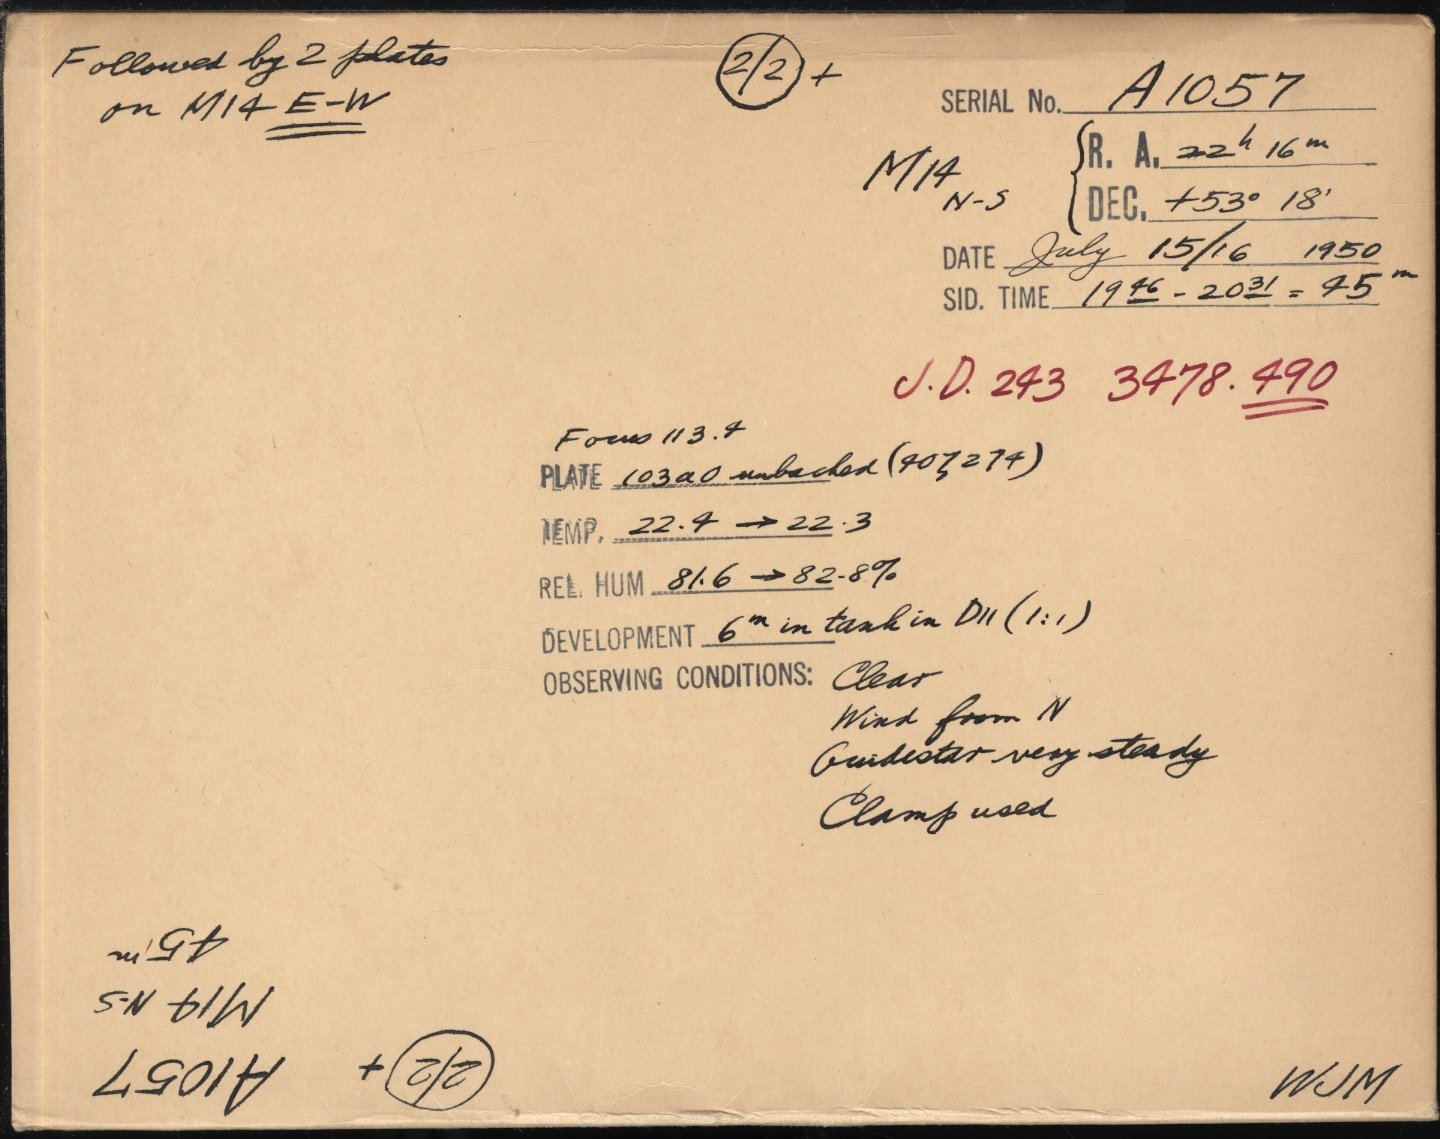 Followed by 2 plates
on M14 E-W
2/2 +
SERIAL No. A1057
M14 N-S
R. A. 22h 16m
DEC. +53° 18'
DATE July 15/16 1950
SID. TIME 19 46 - 20 31 = 45m
J.D. 243 3478.490
Focus 113.4
PLATE 103aO unbacked (407274)
TEMP. 22.4 → 22.3
REL. HUM 81.6 → 82.8%
DEVELOPMENT 6m in tank in D11 (1:1)
OBSERVING CONDITIONS: Clear
Wind from N
Guidestar very steady
Clamp used
45m
M14 N-S
A1057
2/2 +
WJM